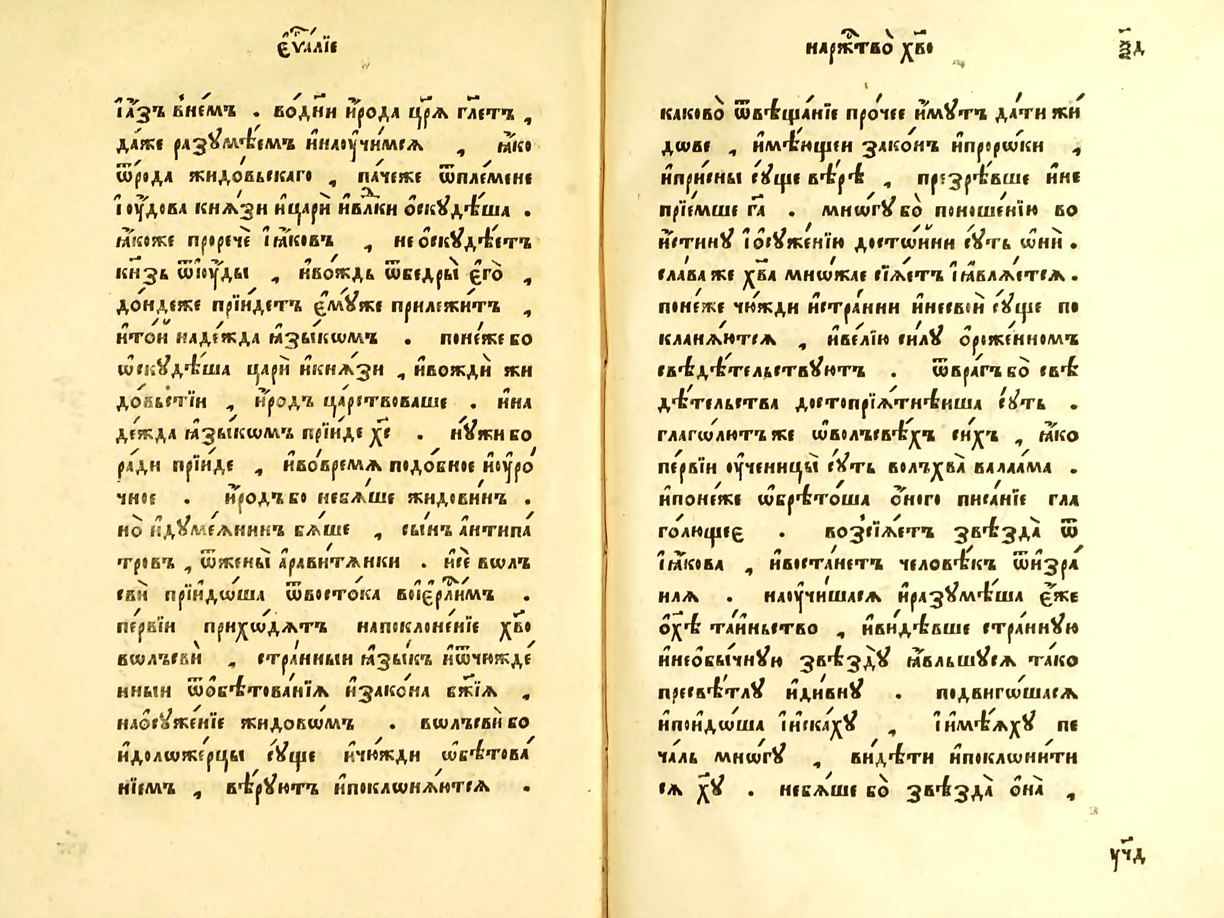 є҆ѵⷢ҇лїе
і҆а́зъ вне́мъ . во́дни и҆́рода цр҃ѧ гл҃етъ ,
да́же разꙋмѣ́емъ и҆наоу҆чи́мсѧ , ꙗ҆́ко
ѿро́да жидо́вьскаго , па́чеже ѿпле́мене
і҆оу҆́дова кнѧ́зи и҆царѝ и҆влⷣки ѻ҆скꙋдѣ́ша .
ꙗ҆́коже проречѐ і҆а́ковъ , не ѻ҆скꙋдѣ́етъ
кн҃зь ѿію҆́ды , и҆во́ждь ѿбедры̀ є҆гѡ̀ ,
до́ндеже прїи́детъ є҆мꙋ́же прилежи́тъ ,
и҆то́й наде́жда ꙗ҆зы́кѡмъ . поне́же бо
ѡ҆скꙋдѣ́ша царѝ и҆кнѧ́зи , и҆вождѝ жи
до́вьстїи , и҆́родъ ца́рствоваше . и҆на
де́жда ꙗ҆зы́кѡмъ прїи́де хе҃ . нꙋ́жи бо
ра́ди прїи́де , и҆во́времѧ подо́бное и҆оу҆ро́
чное . и҆́родъ бо небѧ́ше жидови́нъ .
но̀ и҆дꙋме́ѧнинъ бѧ́ше , сы́нъ а҆нтипа́
тровъ , ѿжены̀ а҆равитѧ́нки . и҆сѐ вѡлъ
свѝ прїидо́ша ѿвосто́ка воі҆єрⷭ҇ли́мъ .
пе́рвїи прихо́дѧтъ напоклоне́нїе хв҃о
вѡлъсвѝ , стра́нныи ꙗ҆зы́къ и҆ѿчюжде́
нныи ѿѻ҆бѣтова́нїѧ и҆зако́на бж҃їѧ ,
наѻ҆сꙋже́нїе жидовѡ́мъ . вѡлъсвѝ бо
и҆долѡже́рцы сꙋ́ще и҆чю́жди ѡ҆бѣтова́
нїемъ , вѣ́рꙋютъ и҆поклѡнѧ́ютсѧ .
нарⷤтво̀ хв҃о
ѯ҃д
каково̀ ѿвѣща́нїе про́чее и҆́мꙋтъ да́ти жи́
дове , и҆мѣ́ющеи зако́нъ и҆проро́ки ,
и҆при́сны сꙋ́ще вѣ́рѣ , презрѣ́вше и҆не
прїе́мше га҃ . мнѡ́гꙋ бо̀ поноше́нїю во
и҆́стинꙋ і҆ѻ҆сꙋже́нїю досто́йни сꙋ́ть ѡ҆нѝ .
сла́ва же хв҃а мно́жае сїѧ́етъ і҆ꙗ҆влѧ́етсѧ .
поне́же чю́жди и҆стра́нни и҆несвоѝ сꙋ́ще по
кланѧ́ютсѧ , и҆ве́лїю си́лꙋ ѻ҆роже́нномъ
свѣдѣ́тельствꙋютъ . ѿвра́гъ бо̀ свѣ
дѣ́тельства достопрїѧ́тнѣиша сꙋ́ть .
глаго́лютъ же ѡ҆волъсвѣ́хъ си́хъ , ꙗ҆́ко
пе́рвїи оу҆ченицы̀ сꙋ́ть волъхва̀ валаа́ма .
и҆поне́же ѡ҆брѣто́ша ѻ҆́ного писа́нїе гла
го́лющеє . возсїѧ́етъ звѣзда̀ ѿ
і҆а́кова , и҆воста́нетъ человѣ́къ ѿи҆зра́
илѧ . наоу҆чи́шасѧ и҆разꙋмѣ́ша є҆́же
ѻ҆хѣ҃ та́иньство , и҆ви́дѣвше стра́ннꙋю
и҆неѻ҆бы́чнꙋю звѣздꙋ̀ ꙗ҆́вльшꙋсѧ та́ко
пресвѣ́тлꙋ и҆ди́внꙋ . подвиго́шасѧ
и҆поидо́ша і҆и҆ска́хꙋ , і҆и҆мѣ́ѧхꙋ пе
ча́ль мнѡ́гꙋ , ви́дѣти и҆поклони́ти
сѧ хꙋ҃ . небѧ́ше бо̀ звѣзда̀ ѻ҆на̀ ,
уч҃д